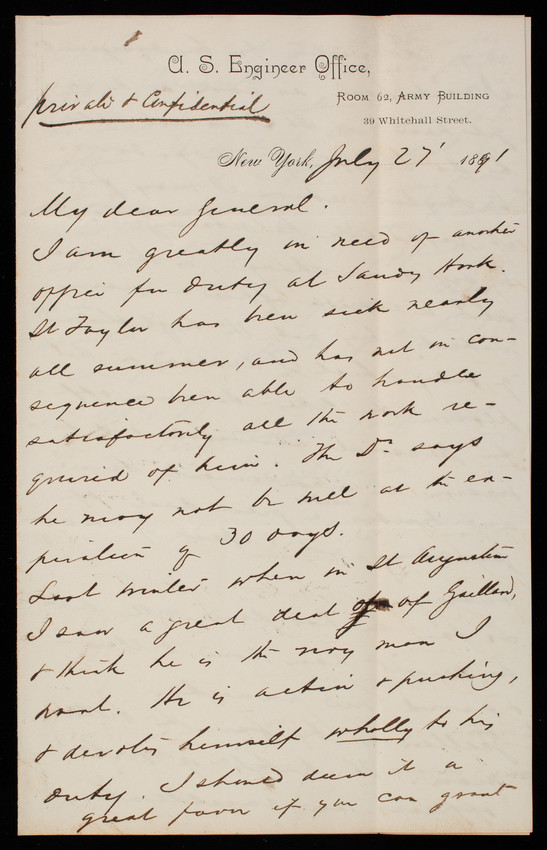 U. S. Engineer Office,
Room 62, Army Building
39 Whitehall Street.
private & Confidential
New York, July 27' 1891
My dear General.
I am greatly in need of another
officer for duty at Sandy Hook.
Lt Taylor has been sick nearly
all summer, and has not in con-
sequence been able to handle
satisfactorily all the work re-
quired of him. The Dr. says
he may not be well at the ex-
piration of 30 days.
Last winter when in St Augustine
I saw a great deal of Gaillard,
& think he is the very man I
want. He is active & pushing,
& devotes himself wholly to his
duty. I should deem it a
great favor if you can grant